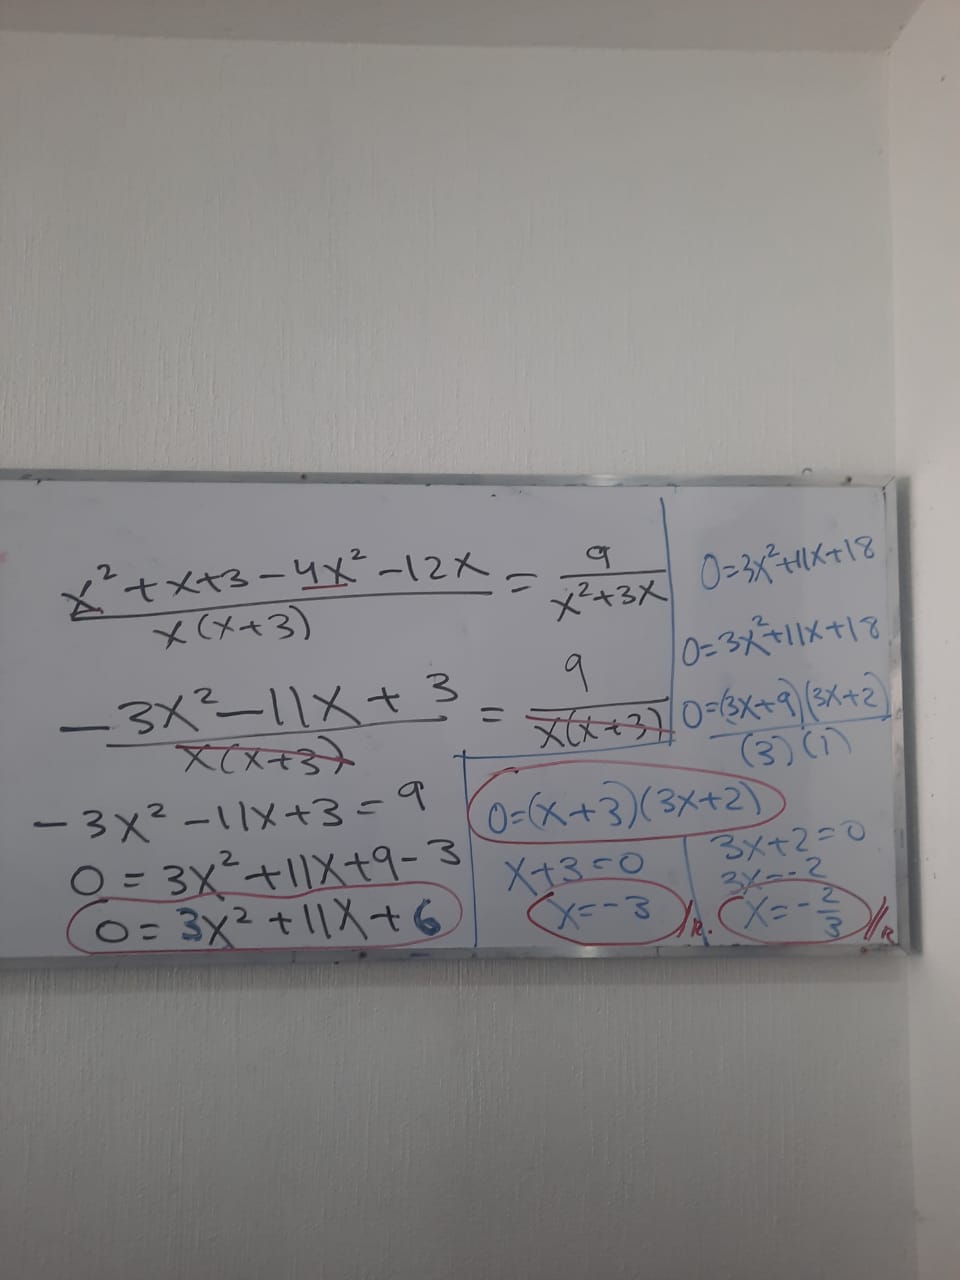 x² + x+3 - 4x² - 12x / x(x+3) = 9 / x²+3x
-3x² - 11x + 3 / x(x+3) = 9 / x(x+3)
-3x² - 11x + 3 = 9
0 = 3x² + 11x + 9 - 3
0 = 3x² + 11x + 6
0=3x²+11x+18
0=3x²+11x+18
0=(3x+9)(3x+2) / (3)(1)
0=(x+3)(3x+2)
x+3=0
x=-3 //R.
3x+2=0
3x=-2
x=-2/3 //R